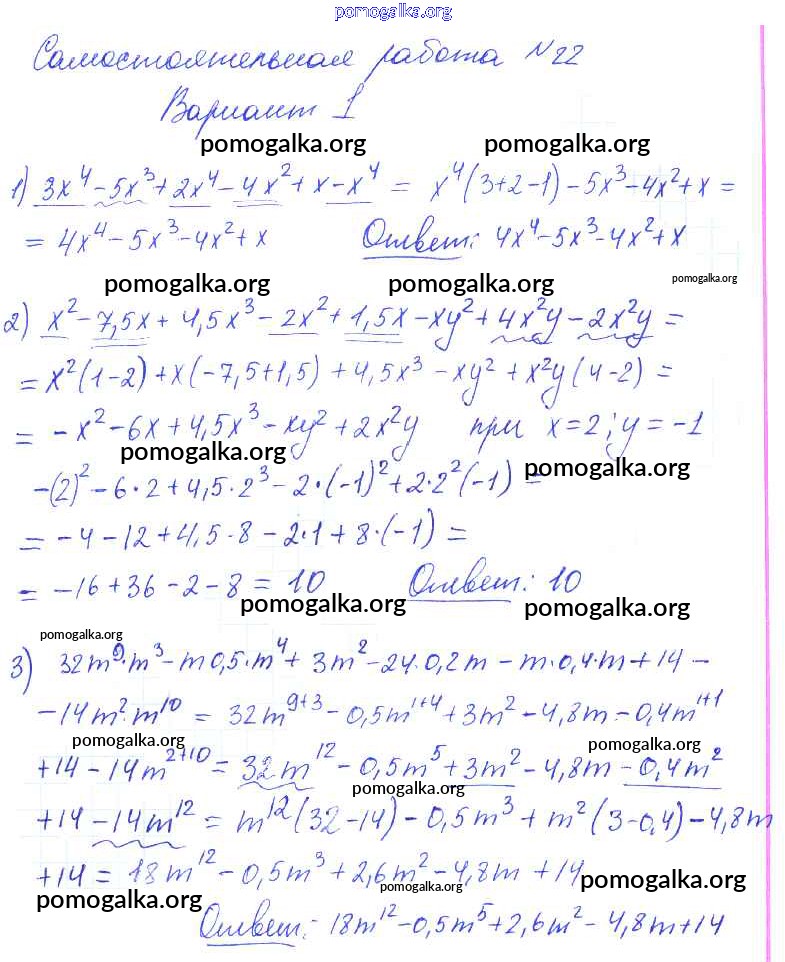 pomogalka.org
Самостоятельная работа №22
Вариант 1
pomogalka.org pomogalka.org
1) 3x⁴ - 5x³ + 2x⁴ - 4x² + x - x⁴ = x⁴(3+2-1) - 5x³ - 4x² + x =
= 4x⁴ - 5x³ - 4x² + x Ответ: 4x⁴ - 5x³ - 4x² + x
pomogalka.org pomogalka.org pomogalka.org
2) x² - 7,5x + 4,5x³ - 2x² + 1,5x - xy² + 4x²y - 2x²y =
= x²(1-2) + x(-7,5+1,5) + 4,5x³ - xy² + x²y(4-2) =
= -x² - 6x + 4,5x³ - xy² + 2x²y при x=2; y=-1
pomogalka.org pomogalka.org
-(2)² - 6·2 + 4,5·2³ - 2·(-1)² + 2·2²(-1) =
= -4 - 12 + 4,5·8 - 2·1 + 8·(-1) =
= -16 + 36 - 2 - 8 = 10 Ответ: 10
pomogalka.org pomogalka.org
pomogalka.org
3) 32m⁹·m³ - m0,5·m⁴ + 3m² - 24·0,2m - m·0,4·m + 14 -
- 14m²·m¹⁰ = 32m⁹⁺³ - 0,5m¹⁺⁴ + 3m² - 4,8m - 0,4m¹⁺¹
pomogalka.org pomogalka.org
+14 - 14m²⁺¹⁰ = 32m¹² - 0,5m⁵ + 3m² - 4,8m - 0,4m²
pomogalka.org
+14 - 14m¹² = m¹²(32-14) - 0,5m³ + m²(3-0,4) - 4,8m
+14 = 18m¹² - 0,5m³ + 2,6m² - 4,8m + 14
pomogalka.org pomogalka.org pomogalka.org
Ответ: 18m¹² - 0,5m⁵ + 2,6m² - 4,8m + 14